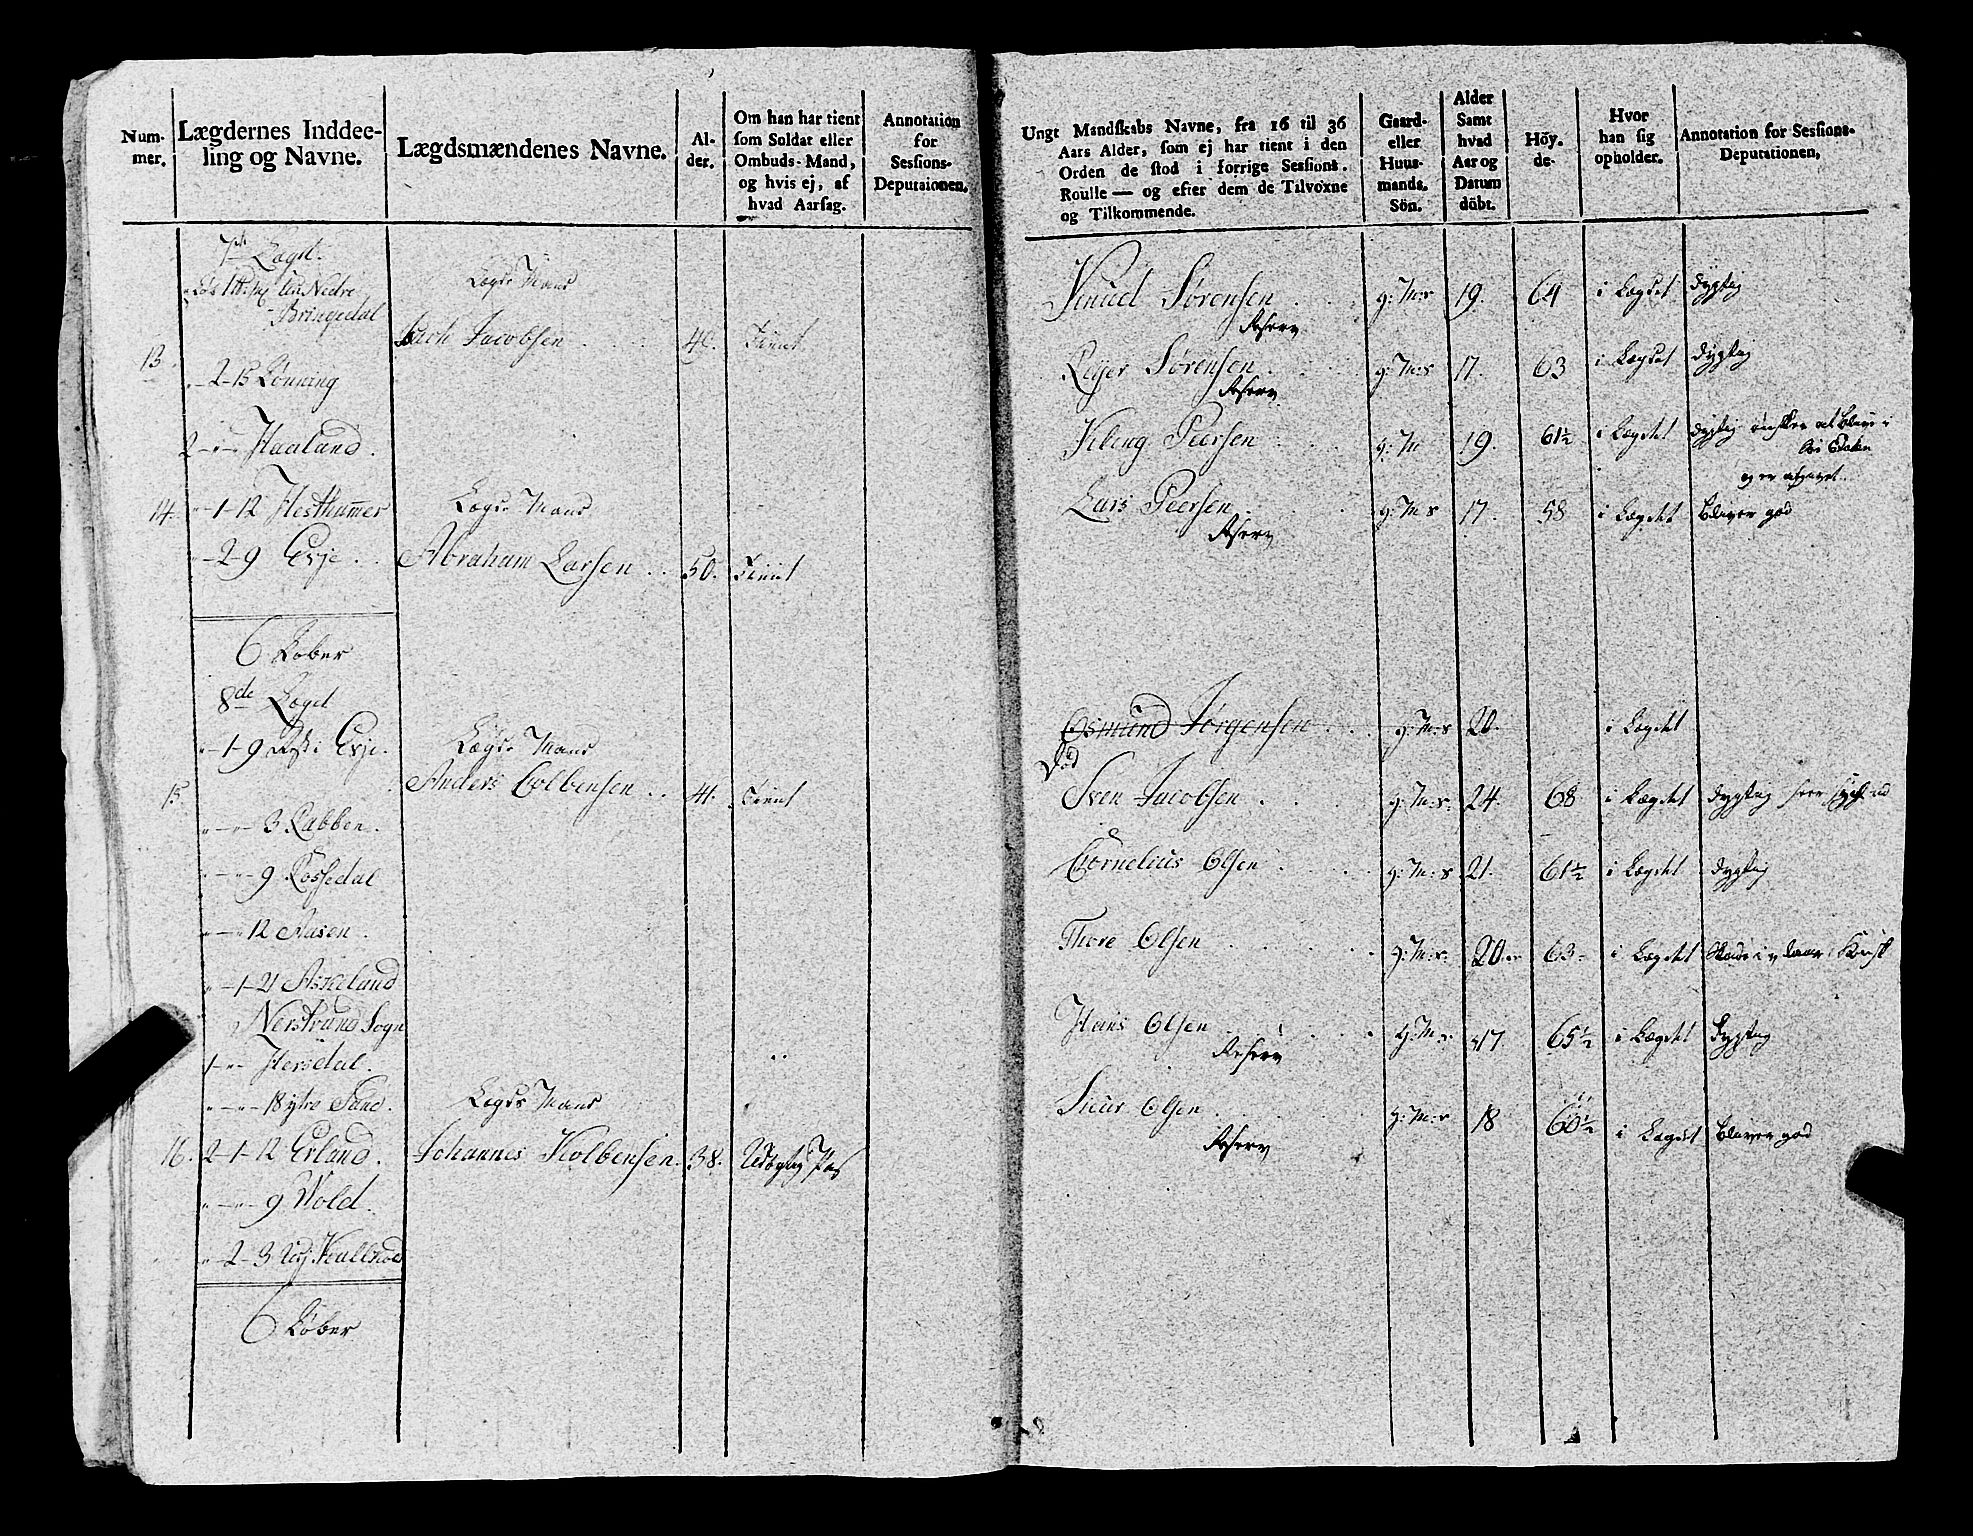 Num-
mer.
Lægdernes Inddee-
ling og Navne.
Lægdsmændenes Navne.
Al-
der.
Om han har tient
som Soldat eller
Ombuds-Mand,
og hvis ej, af
hvad Aarsag.
Annotation
for
Sessions-
Deputaionen.
7de Lægd.
Nedre
Bringedal
Lægds Mand
13. Jacobsen 40. Tient
2-15 Lønning
2 - " - " Haaland.
14. " - 1-12 Hesthammer Lægds Mand
" - 2-9 Evje Abraham Larsen 50. Tient
6 Løber
8de Lægd
" - 1-9 Evje. Lægds Mand
15. Anders Colbensen 41. Tient
" - " - 3 Labben.
" - " - 9 Røssedal
" - " - 12 Aasen.
" - 1-21 Askeland
Nerstrand Sogn
1 - " - " Hersdal.
" - " - 18 ytre Sand. Lægds Mand
16. 2-1-12 Erland. Johannes Kolbensen. 38. Udøgtig
" - " - 9 Wold.
" - 2-3
6 Løber
Ungt Mandskabs Navne, fra 16 til 36
Aars Alder, som ej har tient i den
Orden de stod i forrige Sessions-
Roulle — og efter dem de Tilvoxne
og Tilkommende.
Gaard-
eller
Huus-
mands.
Sön.
Alder
Samt
hvad
Aar og
Datum
döbt.
Höy-
de.
Hvor
han sig
opholder.
Annotation for Sessions-
Deputationen,
Knud Sørensen g: M:s 19. 64 i Lægdet dygtig
Reserv
Reier Sørensen g: M:s 17. 63 i Lægdet dygtig
Reserv
Kleng Peersen g: M 19. 61½ i Lægdet dygtig ønsker at blive i
Lars Peersen g: M s 17. 58 i Lægdet bliver god
Reserv
Osmund Jørgensen g: M:s 20 i Lægdet
Død
Sven Jacobsen g: M:s. 24. 68 i Lægdet dygtig
Cornelius Olsen g: M:s 21. 61½ i Lægdet dygtig
Thore Olsen g: M:s. 20 63 i Lægdet
Hans Olsen g: M:s 17 65½ i Lægdet dygtig
Reserv
Siur Olsen g: M:s 18 60½ i Lægdet bliver god
Reserv